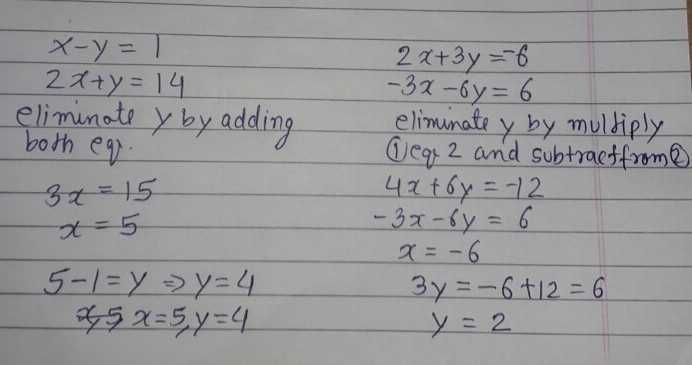 x-y = 1
2x+y = 14
eliminate y by adding
both eq.
3x = 15
x = 5
5-1 = y ⇒ y = 4
x=5, y=4
2x+3y = -6
-3x-6y = 6
eliminate y by multiply
① eq 2 and subtract from ②
4x+6y = -12
-3x-6y = 6
x = -6
3y = -6+12 = 6
y = 2